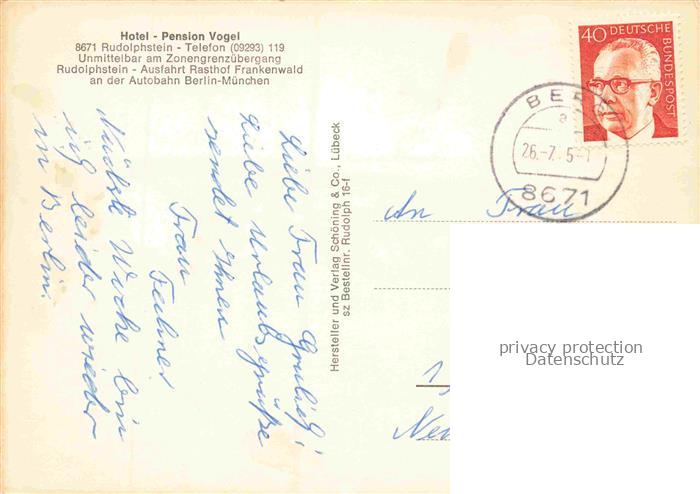 Hotel - Pension Vogel
8671 Rudolphstein - Telefon (09293) 119
Unmittelbar am Zonengrenzübergang
Rudolphstein - Ausfahrt Rasthof Frankenwald
an der Autobahn Berlin-München
Liebe Frau
Liebe Urlaubsgrüße
sendet Ihnen
Frau
Fechner
Nächste Woche bin
ich leider wieder
in Berlin.
Hersteller und Verlag Schöning & Co., Lübeck
sz Bestellnr. Rudolph 16-f
40 DEUTSCHE
BUNDESPOST
BERG
a
26.-7.
8671
An Frau
privacy protection
Datenschutz